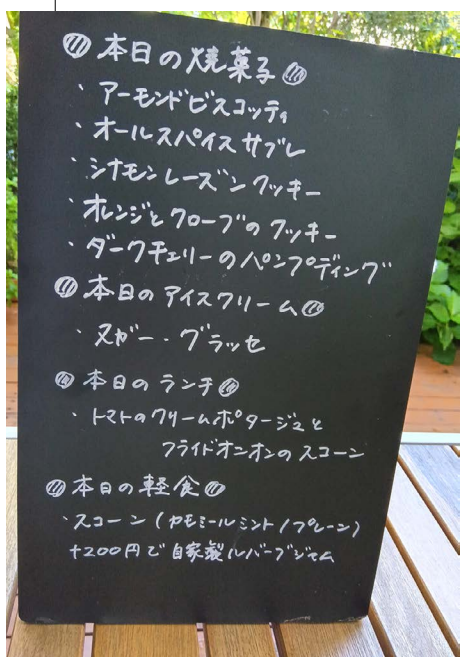 ◎本日の焼菓子◎
・アーモンドビスコッティ
・オールスパイスサブレ
・シナモンレーズンクッキー
・オレンジとクローブのクッキー
・ダークチェリーのパンプディング
◎本日のアイスクリーム◎
・ヌガー・グラッセ
◎本日のランチ◎
・トマトのクリームポタージュと
フライドオニオンのスコーン
◎本日の軽食◎
・スコーン(カモミールミント/プレーン)
+200円で自家製ルバーブジャム